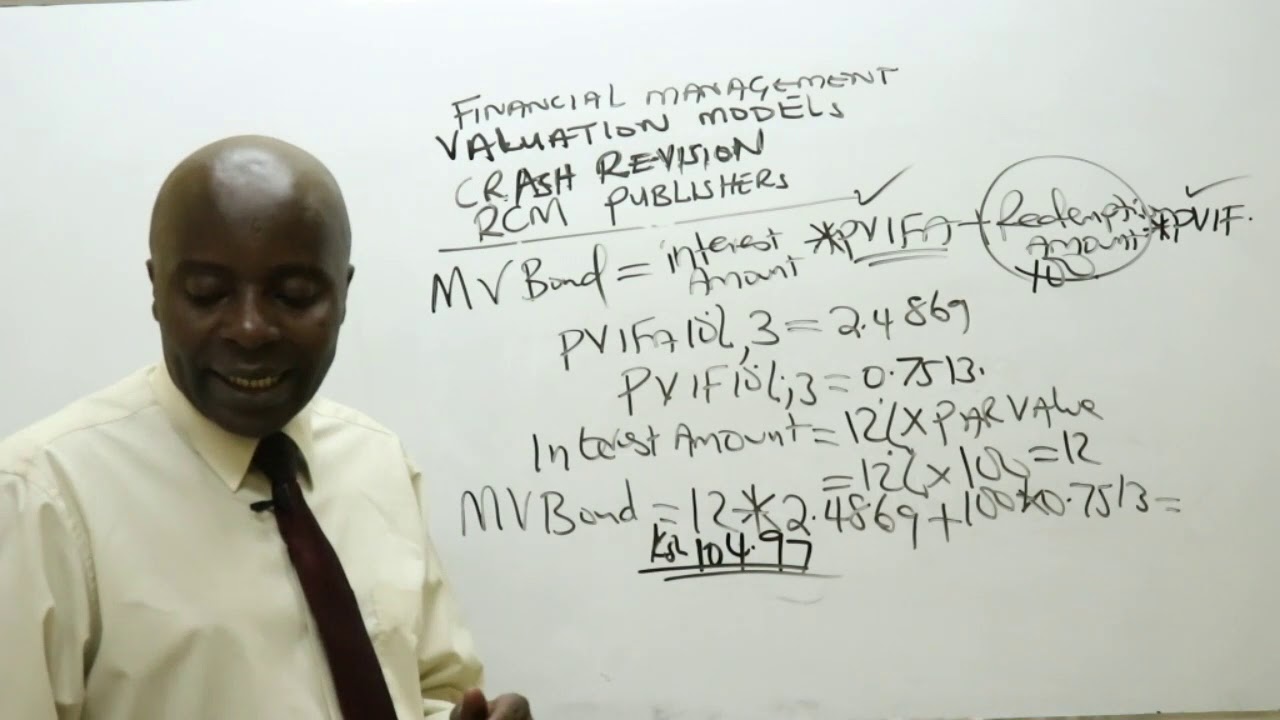 FINANCIAL MANAGEMENT
VALUATION MODELS
CRASH REVISION
RCM PUBLISHERS
MV Bond = interest Amount *PVIFA + Redemption Amount *PVIF.
100
PVIFA10%,3 = 2.4869
PVIF10%,3 = 0.7513.
Interest Amount = 12% X PAR Value
= 12% X 100 = 12
MV Bond = 12 * 2.4869 + 100*0.7513 =
Ksh 104.97